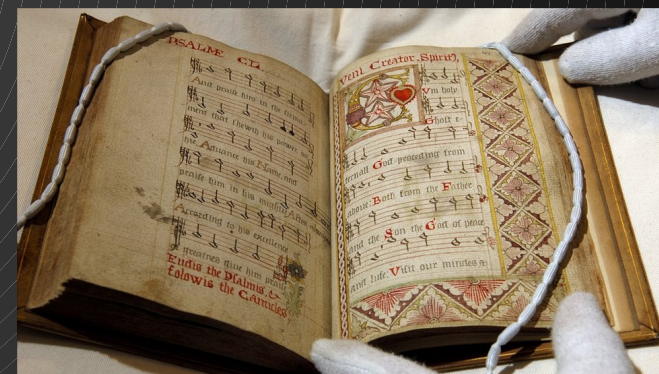 PSALME CL.
And praise him in the firma-
ment that sheweth his power
Aduance his Name, and
praise him in his mightiy
According to his excellent
greatnes giue him praise
Endis the Psalmis, &
folowis the Canticles
Veni Creator Spirit9,
Vm holy
Ghost e-
ternall God proceding from
aboue: Both from the Father
and the Son the God of peace
and lufe: Visit our mindes &